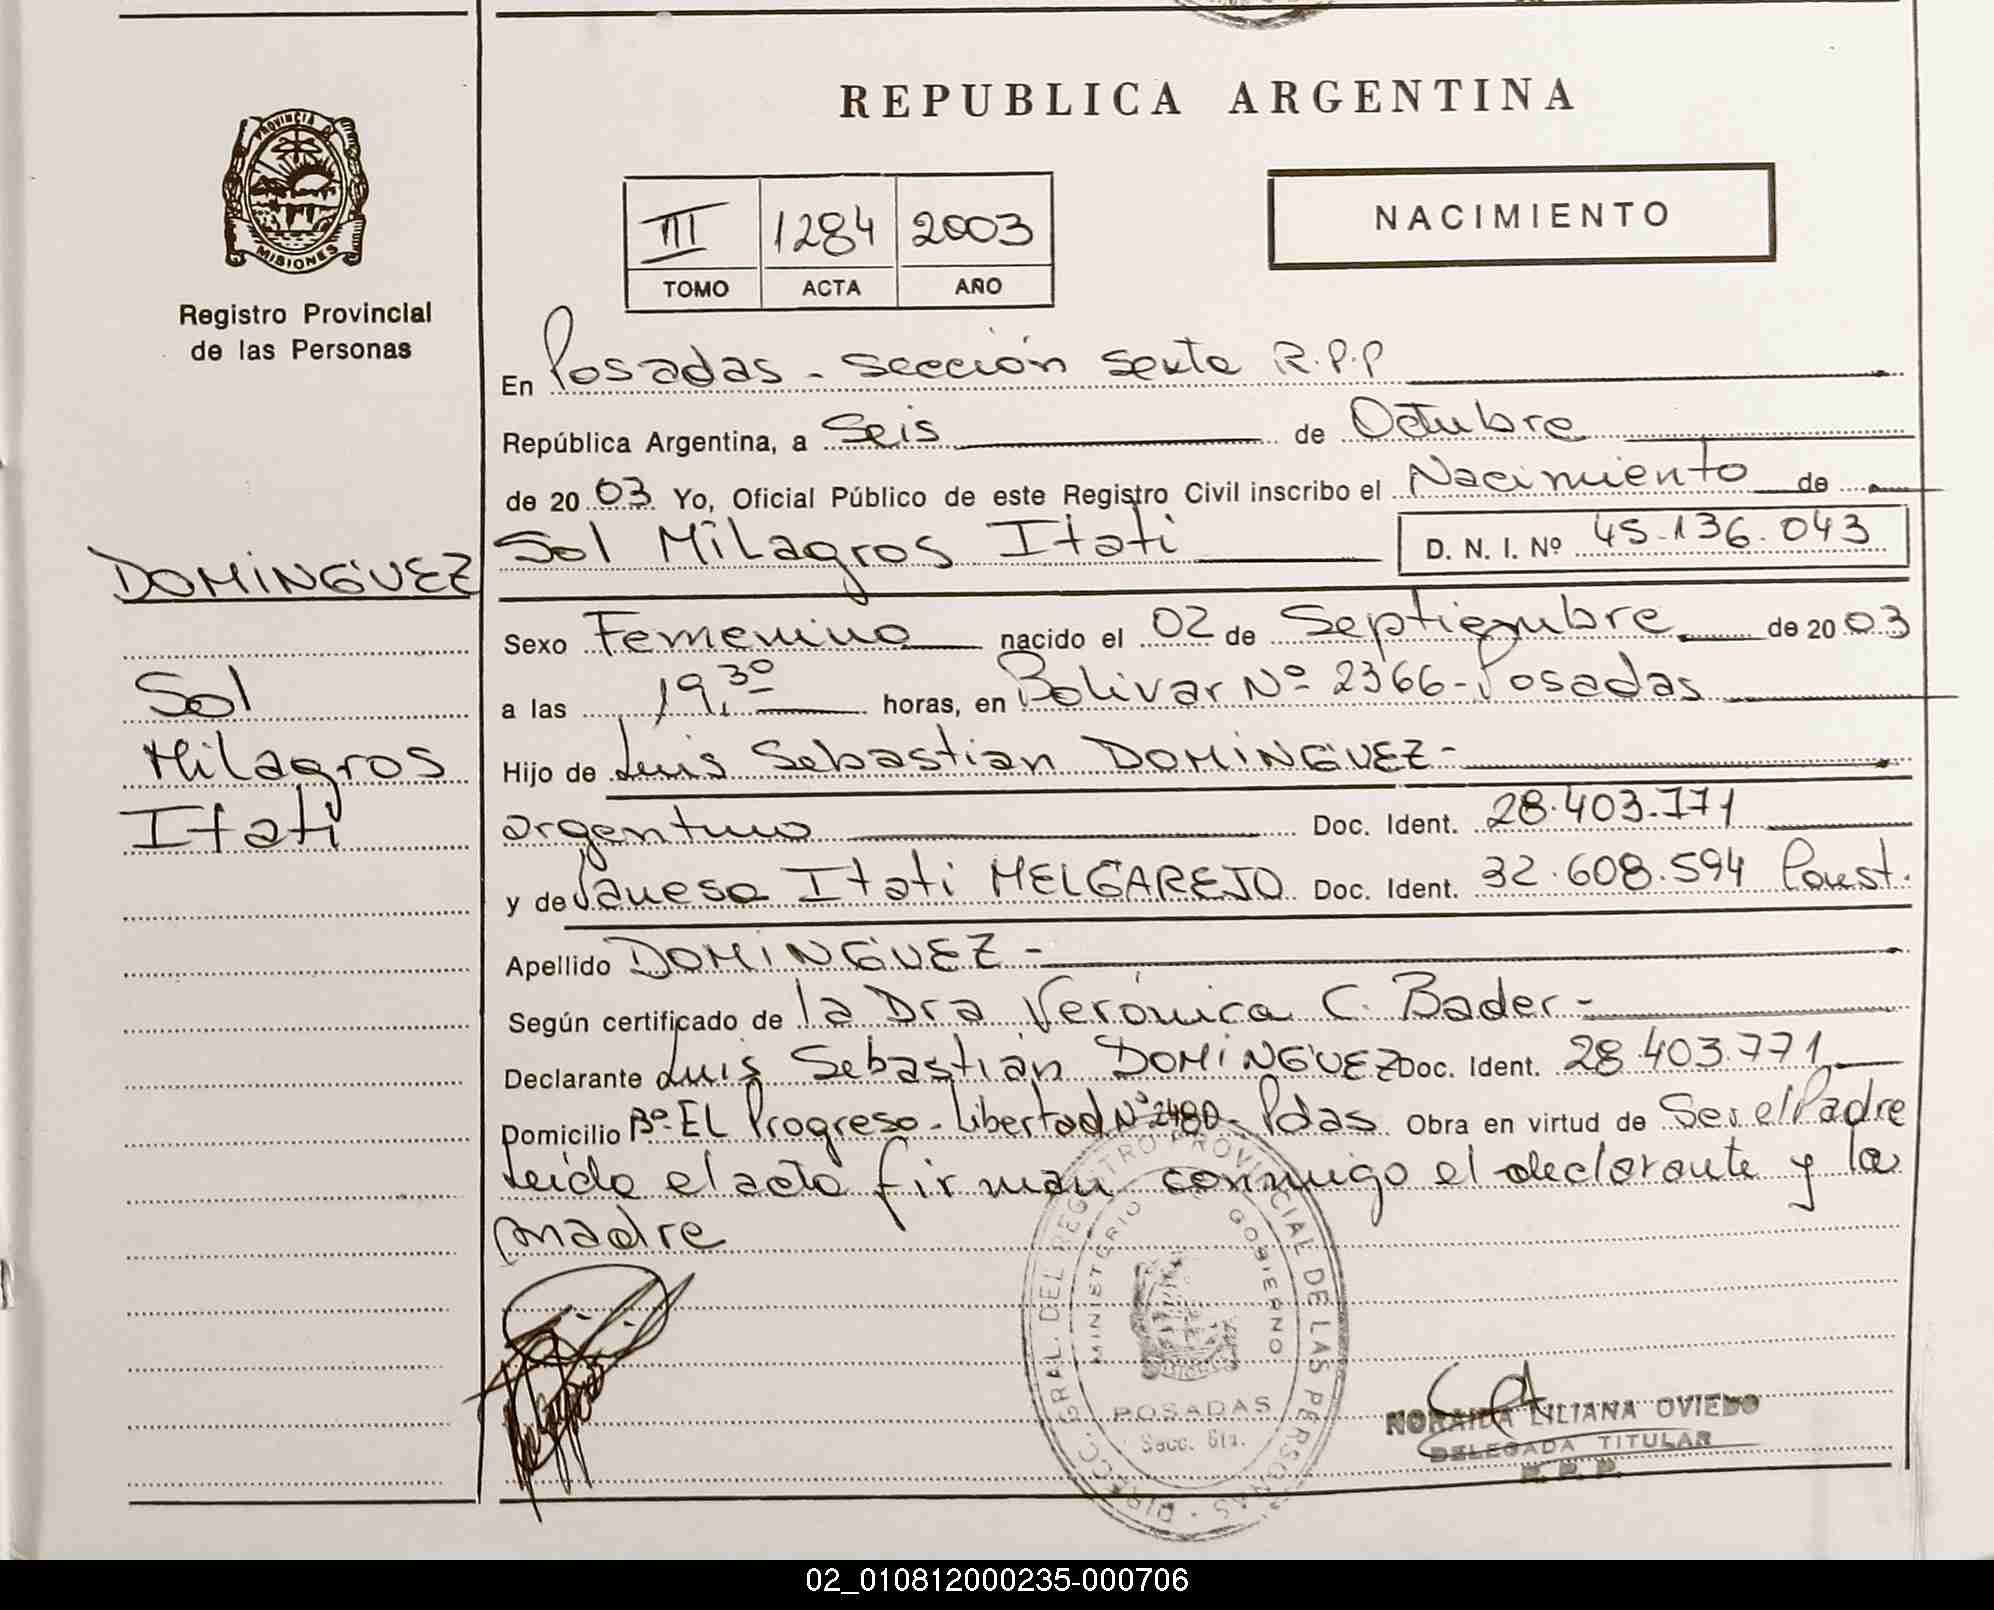 REPUBLICA ARGENTINA
PROVINCIA D
MISIONES
Registro Provincial
de las Personas
III 1284 2003
TOMO ACTA AÑO
NACIMIENTO
En Posadas - sección sexta R.P.P
República Argentina, a Seis de Octubre
de 2003 Yo, Oficial Público de este Registro Civil inscribo el Nacimiento de
Sol Milagros Itati D. N. I. Nº 45.136.043
DOMINGUEZ
Sol
Milagros
Itati
Sexo Femenino nacido el 02 de Septiembre de 2003
a las 19,30 horas, en Bolivar Nº 2366 - Posadas
Hijo de Luis Sebastian DOMINGUEZ -
argentino Doc. Ident. 28.403.771
y de Vanesa Itati MELGAREJO Doc. Ident. 32.608.594
Apellido DOMINGUEZ -
Según certificado de la Dra Verónica C. Bader -
Declarante Luis Sebastián DOMINGUEZ Doc. Ident. 28.403.771
Domicilio Bº EL Progreso - Libertad Nº 2480 - Pdas. Obra en virtud de Ser el Padre
Leida el acta firman conmigo el declarante y la
madre
DIRECC. GRAL. DEL REGISTRO PROVINCIAL DE LAS PERSONAS
MINISTERIO GOBIERNO
POSADAS
Secc. 6ta.
NORAIDA LILIANA OVIEDO
DELEGADA TITULAR
R. P. P.
02_010812000235-000706